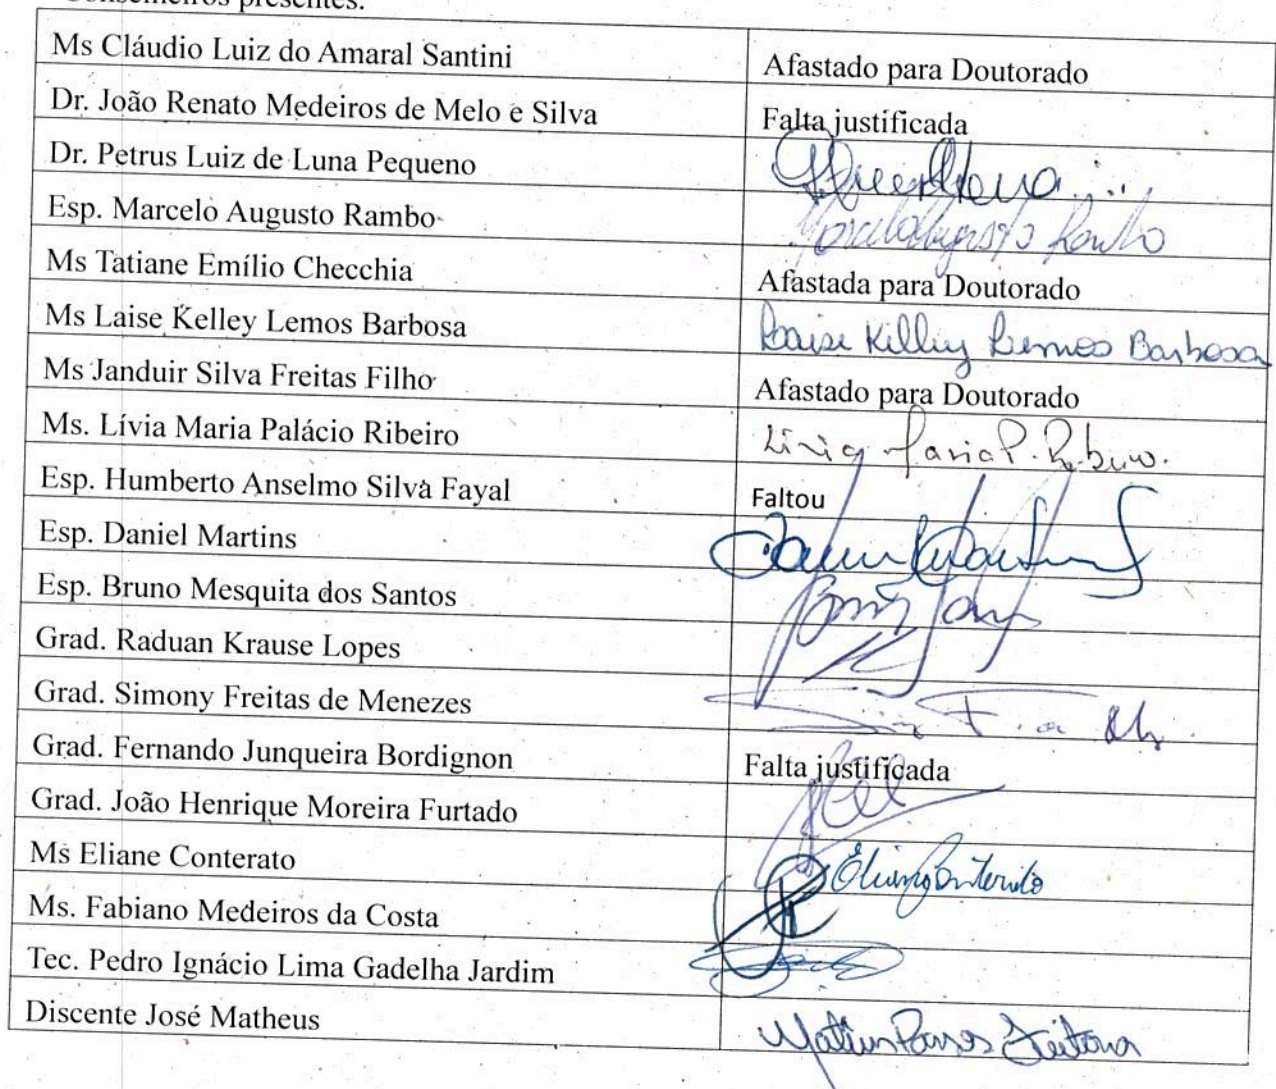 Conselheiros presentes:
Ms Cláudio Luiz do Amaral Santini Afastado para Doutorado
Dr. João Renato Medeiros de Melo e Silva Falta justificada
Dr. Petrus Luiz de Luna Pequeno
Esp. Marcelo Augusto Rambo Marcelo Augusto Rambo
Ms Tatiane Emílio Checchia Afastada para Doutorado
Ms Laise Kelley Lemos Barbosa Laise Kelley Lemos Barbosa
Ms Janduir Silva Freitas Filho Afastado para Doutorado
Ms. Lívia Maria Palácio Ribeiro Lívia Maria P. Ribeiro.
Esp. Humberto Anselmo Silva Fayal Faltou
Esp. Daniel Martins
Esp. Bruno Mesquita dos Santos
Grad. Raduan Krause Lopes
Grad. Simony Freitas de Menezes
Grad. Fernando Junqueira Bordignon Falta justificada
Grad. João Henrique Moreira Furtado
Ms Eliane Conterato Eliane Conterato
Ms. Fabiano Medeiros da Costa
Tec. Pedro Ignácio Lima Gadelha Jardim
Discente José Matheus